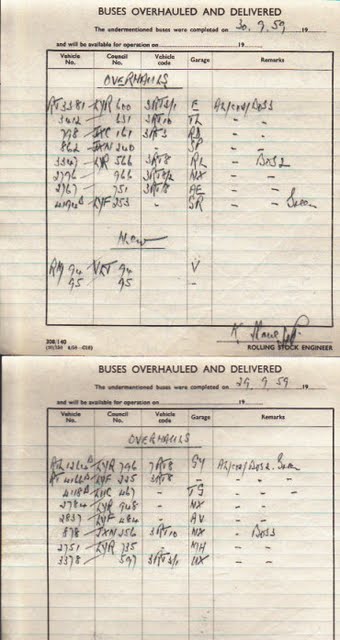 BUSES OVERHAULED AND DELIVERED
The undermentioned buses were completed on 30.9.59 19
and will be available for operation on 19
Vehicle No. Council No. Vehicle code Garage Remarks
OVERHAULS
RT3381 LYR 600 3RT3/1 E
3412 631 3RT10 TL - -
798 JXC 161 3RT3 RD - -
862 JXN 240 - SP - -
3347 LYR 566 3RT8 RL - BOS2
2796 966 3RT8/2 NX - -
2767 751 3RT8 AE - -
LYF 253 - SR - -
New
RM 94 VLT 94 V
95 95 -
308/140
ROLLING STOCK ENGINEER
BUSES OVERHAULED AND DELIVERED
The undermentioned buses were completed on 29.9.59 19
and will be available for operation on 19
Vehicle No. Council No. Vehicle code Garage Remarks
OVERHAULS
LYR 796 7RT8 GY
LYF 225 3RT8 - - -
LYC 467 - TG - -
2784 LYR 948 - NX - -
2837 LYF 484 - AV - -
878 JXN 256 3RT10 NX - BOS3
2751 LYR 735 - MH - -
3378 597 3RT3/1 NX - -